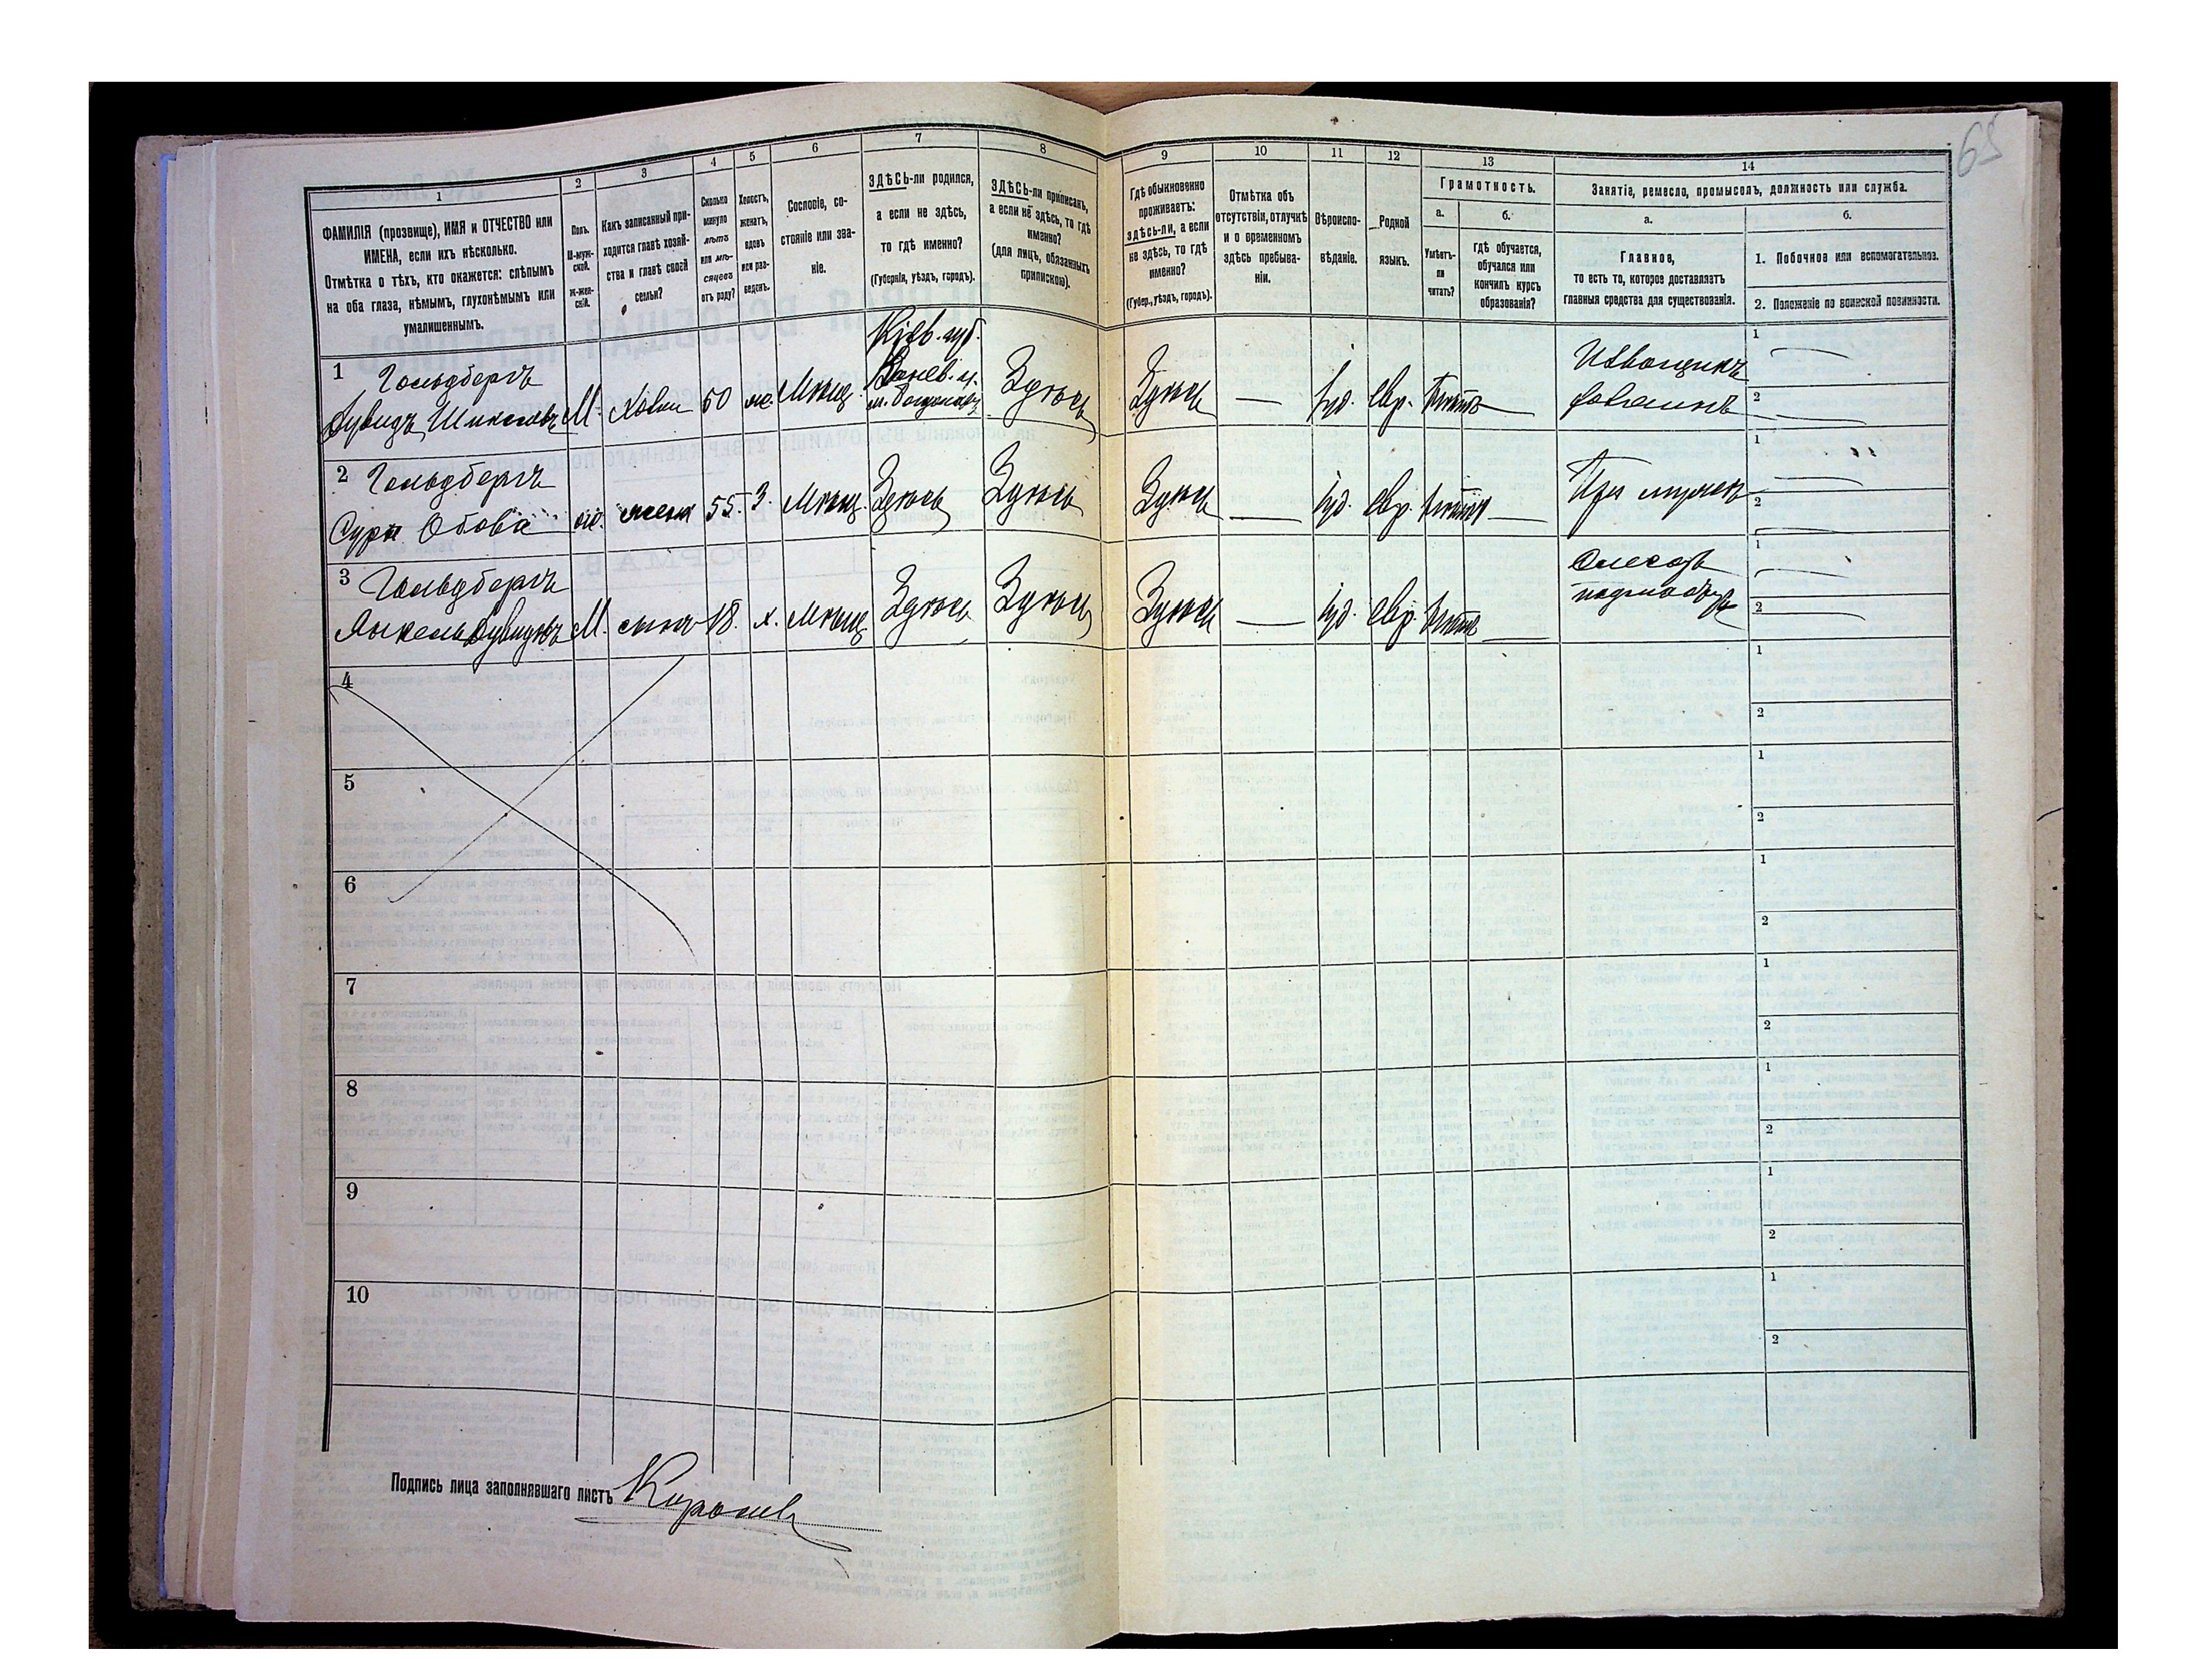 65
1
2
3
4
5
6
7
8
9
10
11
12
13
14
ФАМИЛІЯ (прозвище), ИМЯ и ОТЧЕСТВО или
ИМЕНА, если ихъ нѣсколько.
Отмѣтка о тѣхъ, кто окажется: слѣпымъ
на оба глаза, нѣмымъ, глухонѣмымъ или
умалишеннымъ.
Полъ.
М-муж-
ской.
Ж-жен-
скій.
Какъ записанный при-
ходится главѣ хозяй-
ства и главѣ своей
семьи?
Сколько
минуло
лѣтъ
или мѣ-
сяцевъ
отъ роду?
Холостъ,
женатъ,
вдовъ
или раз-
веденъ.
Сословіе, со-
стояніе или зва-
ніе.
ЗДѢСЬ-ли родился,
а если не здѣсь,
то гдѣ именно?
(Губернія, уѣздъ, городъ).
ЗДѢСЬ-ли приписанъ,
а если не здѣсь, то гдѣ
именно?
(для лицъ, обязанныхъ
припискою).
Гдѣ обыкновенно
проживаетъ:
здѣсь-ли, а если
не здѣсь, то гдѣ
именно?
(Губер., уѣздъ, городъ).
Отмѣтка объ
отсутствіи, отлучкѣ
и о временномъ
здѣсь пребыва-
ніи.
Вѣроиспо-
вѣданіе.
Родной
языкъ.
Грамотность.
а.
б.
Умѣетъ-
ли
читать?
гдѣ обучается,
обучался или
кончилъ курсъ
образованія?
Занятіе, ремесло, промыселъ, должность или служба.
а.
б.
Главное,
то есть то, которое доставляетъ
главныя средства для существованія.
1. Побочное или вспомогательное.
2. Положеніе по воинской повинности.
1 Гольдбергъ
М. 50 Мѣщ. Кіев. губ.
Канев. у.
Здѣсь Здѣсь — Іуд. евр. — Извощикъ
1
2
2 Гольдбергъ
Сура жена 55. З. Мѣщ. Здѣсь Здѣсь Здѣсь — Іуд. евр. — При мужѣ
1
2
3 Гольдбергъ
М. сынъ 18. х. Мѣщ. Здѣсь Здѣсь Здѣсь — Іуд. евр. —
1
2
4
1
2
5
1
2
6
1
2
7
1
2
8
1
2
9
1
2
10
1
2
Подпись лица заполнявшаго листъ